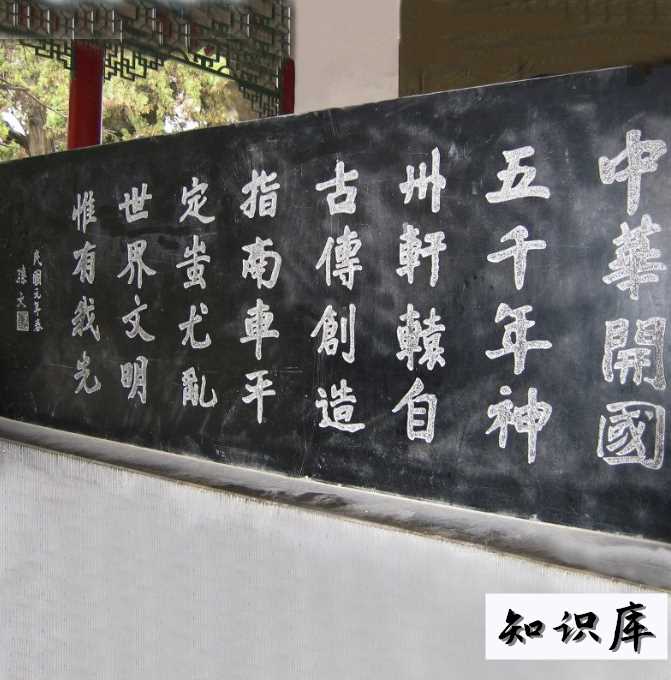 中華開國
五千年神
州軒轅自
古傳創造
指南車平
定蚩尤亂
世界文明
惟有我先
民國元年春
孫文
知识库